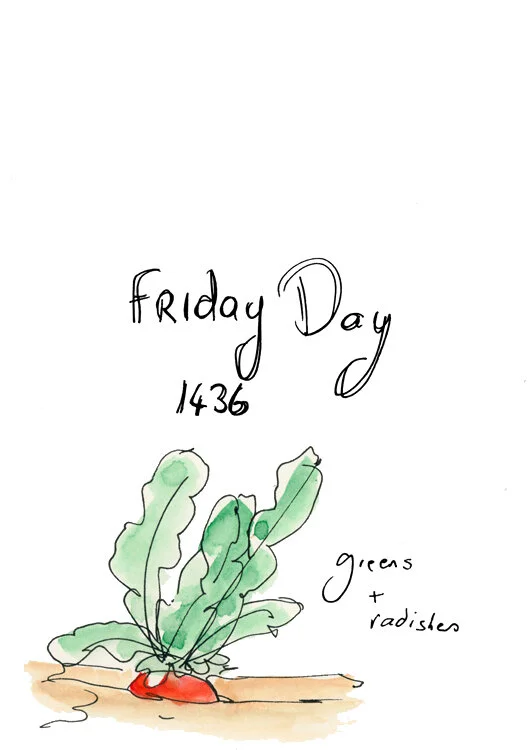 Friday Day
1436
greens
+
radishes